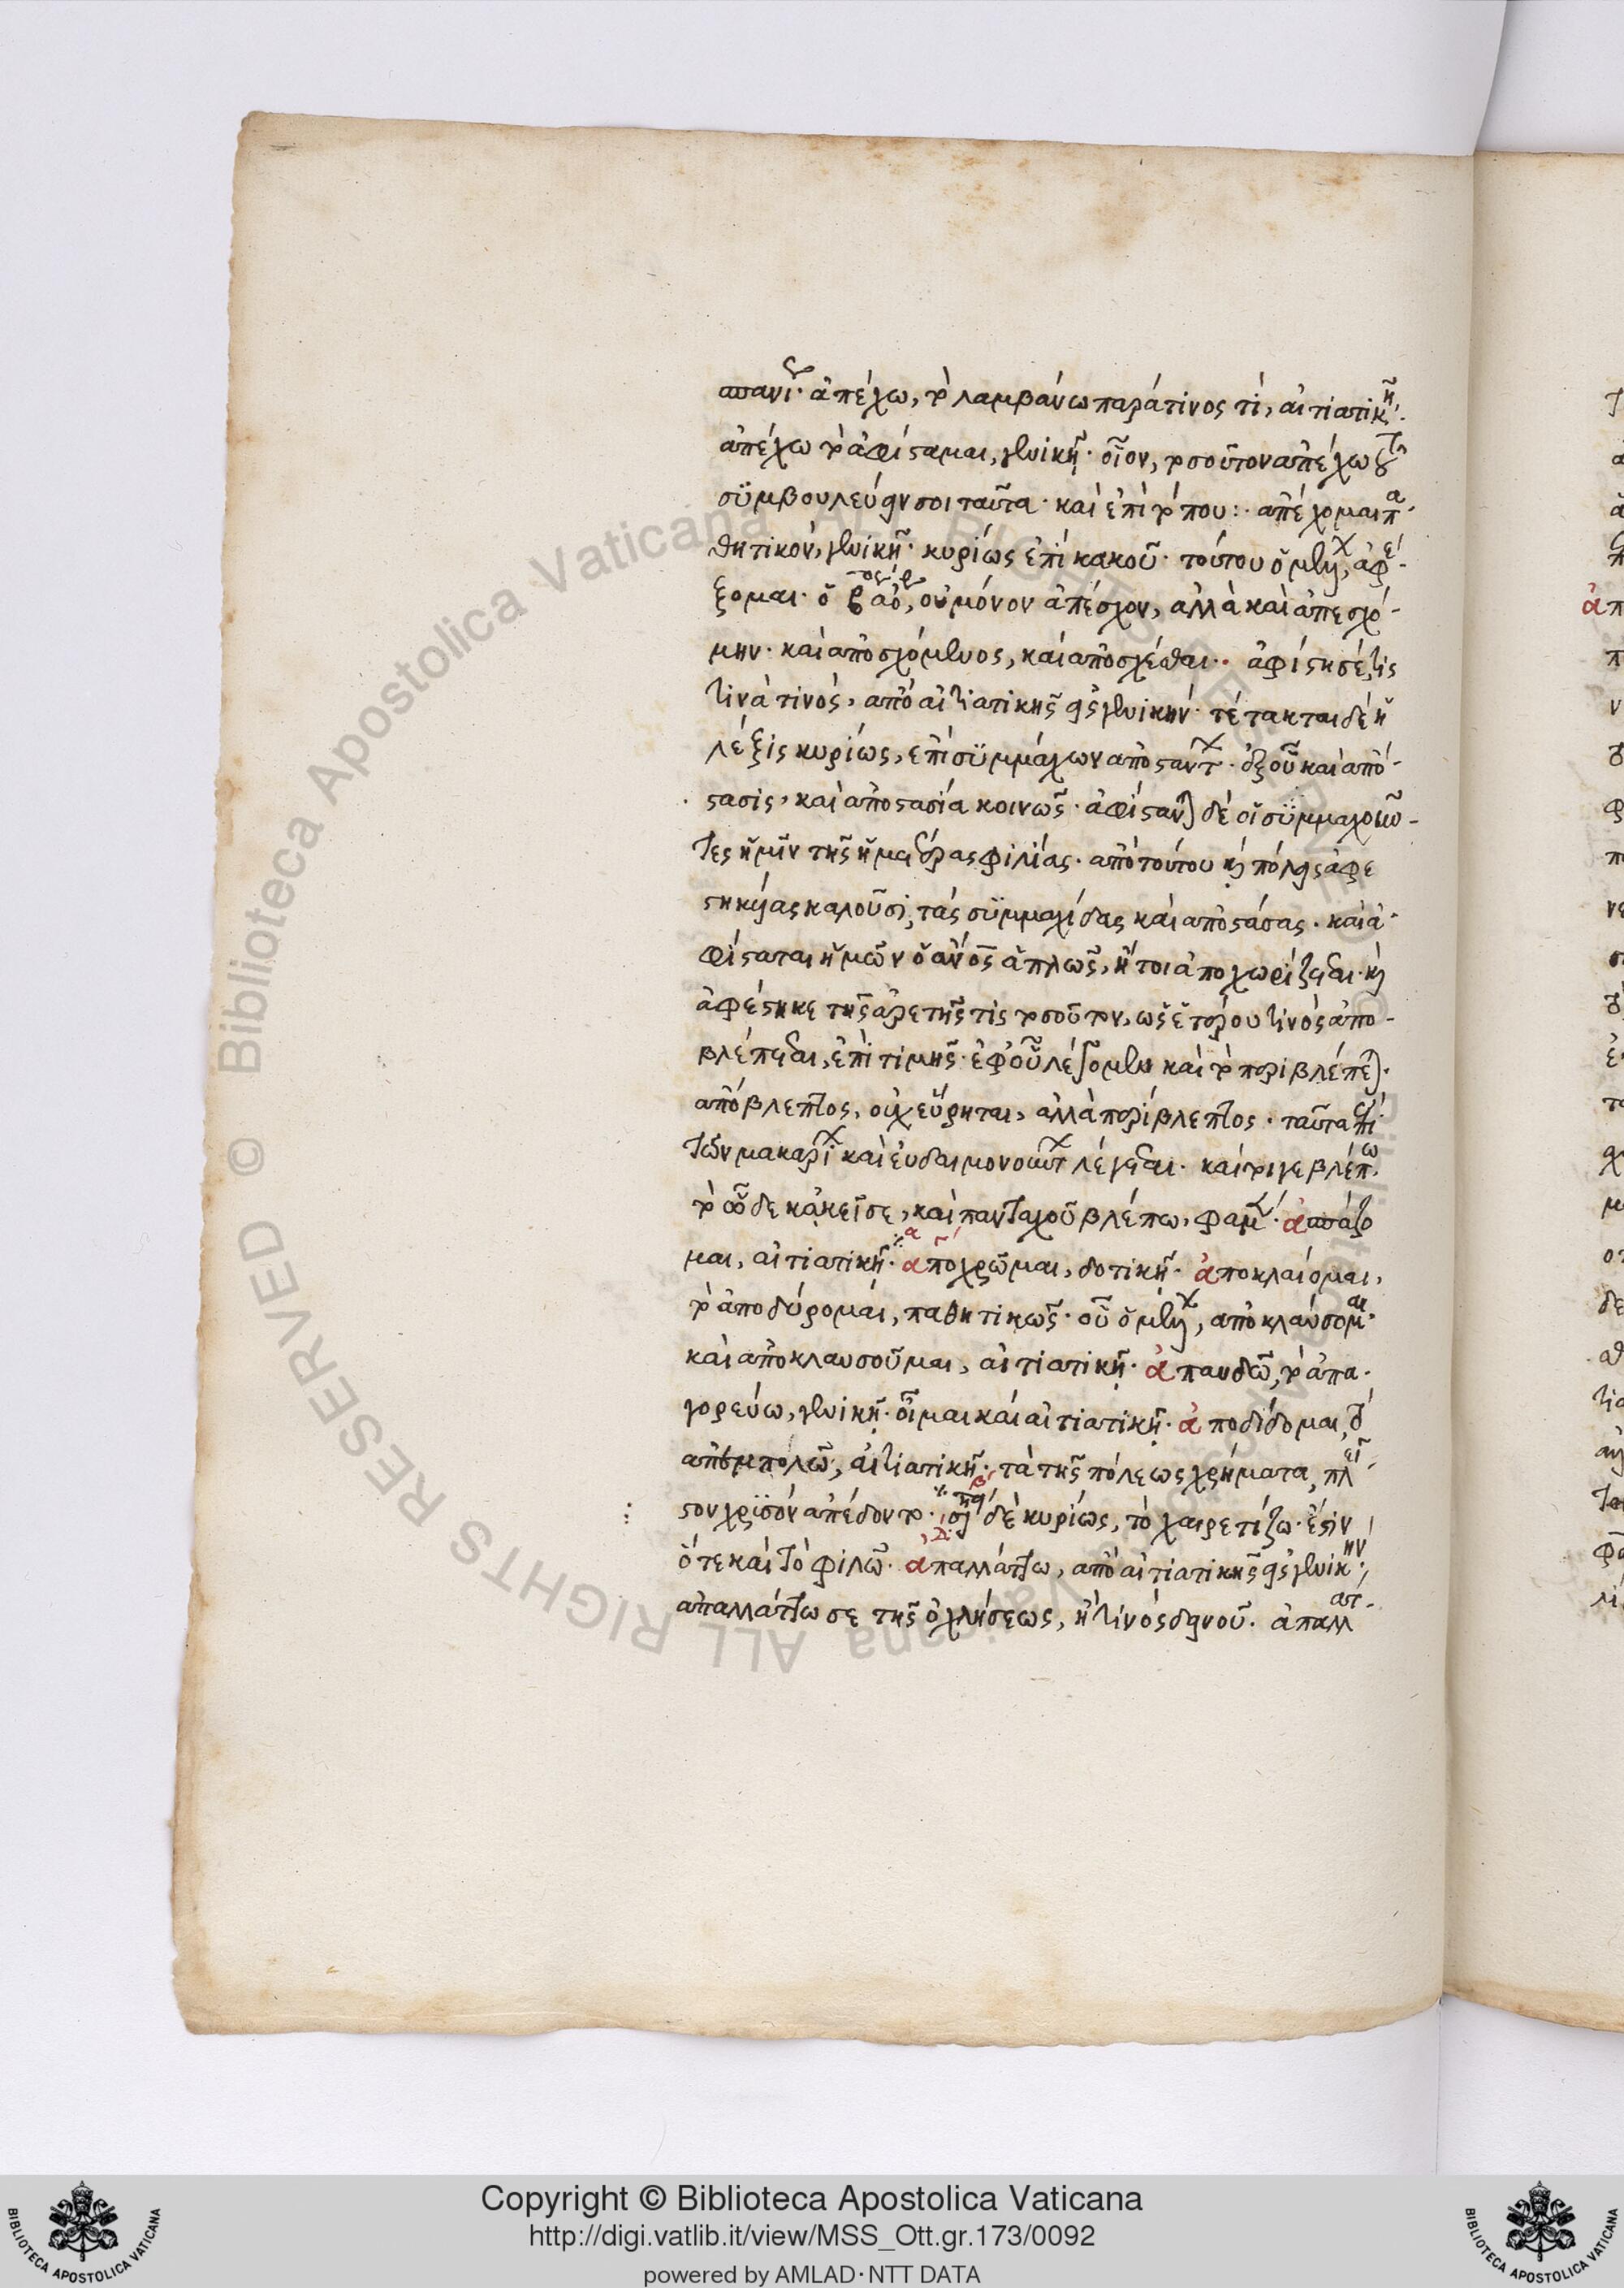 σπανί· ἀπέχω, τὸ λαμβάνω παρά τινος τί, αἰτιατικῆ·
ἀπέχω τὸ ἀφίσταμαι, γενικῆ· οἷον, τοσοῦτον ἀπέχω τοῦ
συμβουλεύειν σοι ταῦτα· καὶ ἐπὶ τόπου:· ἀπέχομαι πα
θητικόν, γενικῆ· κυρίως ἐπὶ κακοῦ· τούτου ὁ μέλλων, ἀφέ-
ξομαι· ὁ βος ἀόρ, οὐ μόνον ἀπέσχον, ἀλλὰ καὶ ἀπεσχό-
μην· καὶ ἀποσχόμενος, καὶ ἀποσχέσθαι· ἀφίστησέ τις
τινὰ τινός, ἀπὸ αἰτιατικῆς εἰς γενικήν· τέτακται δὲ ἡ
λέξις κυρίως, ἐπὶ συμμάχων ἀποστάντων· ἐξ οὗ καὶ ἀπό-
στασις, καὶ ἀποστασία κοινῶς· ἀφίστανται δὲ οἱ σύμμαχοι ὄν-
τες ἡμῖν τῆς ἡμετέρας φιλίας· ἀπὸ τούτου καὶ πόλεις ἀφε
στηκυίας καλοῦσι, τὰς συμμαχίδας καὶ ἀποστάσας· καὶ ἀ-
φίσταται ἡμῶν ὁ ἄνος ἁπλῶς, ἤτοι ἀποχωρίζεσθαι· καὶ
ἀφέστηκε τῆς ἀρετῆς τὶς τοσοῦτον, ὡς ἑτέρου τινός ἀπο-
βλέπεσθαι, ἐπὶ τιμῆς· ἐφ οὗ λέγομεν καὶ τὸ περιβλέπεται·
ἀπόβλεπτος, οὐχ εὕρηται, ἀλλὰ περίβλεπτος· ταῦτα ἐπὶ
τῶν μακαρίων καὶ εὐδαιμονούντων λέγεσθαι· καίτοιγε βλέπω
τὸ ὧδε κἀκεῖσε, καὶ πανταχοῦ βλέπω, φαμέν· ἀσπάζο
μαι, αἰτιατικῆ· ἀποχρῶμαι, δοτικῆ· ἀποκλαίομαι,
τὸ ἀποδύρομαι, παθητικῶς· οὗ ὁ μέλλων, ἀποκλαύσομαι·
καὶ ἀποκλαυσοῦμαι, αἰτιατικῆ· ἀπαυδῶ, τὸ ἀπα-
γορεύω, γενικῆ· οἶμαι καὶ αἰτιατικῆ· ἀποδίδομαι, τὸ
ἀπεμπολῶ, αἰτιατικῆ· τὰ τῆς πόλεως χρήματα, πλεῖ-
στον χρυσόν ἀπέδοντο· δὲ κυρίως, τὸ χαιρετίζω· ἔστιν
ὅτε καὶ τὸ φιλῶ· ἀπαλλάττω, ἀπὸ αἰτιατικῆς εἰς γενικήν,
ἀπαλλάττω σε τῆς ὀχλήσεως, ἢ τινός δεινοῦ· ἀπαλλάτ-
Copyright © Biblioteca Apostolica Vaticana
http://digi.vatlib.it/view/MSS_Ott.gr.173/0092
powered by AMLAD·NTT DATA